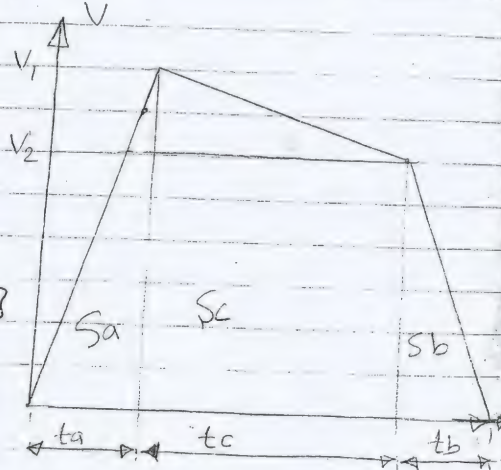 V
V1
V2
Sa Sc Sb
ta tc tb